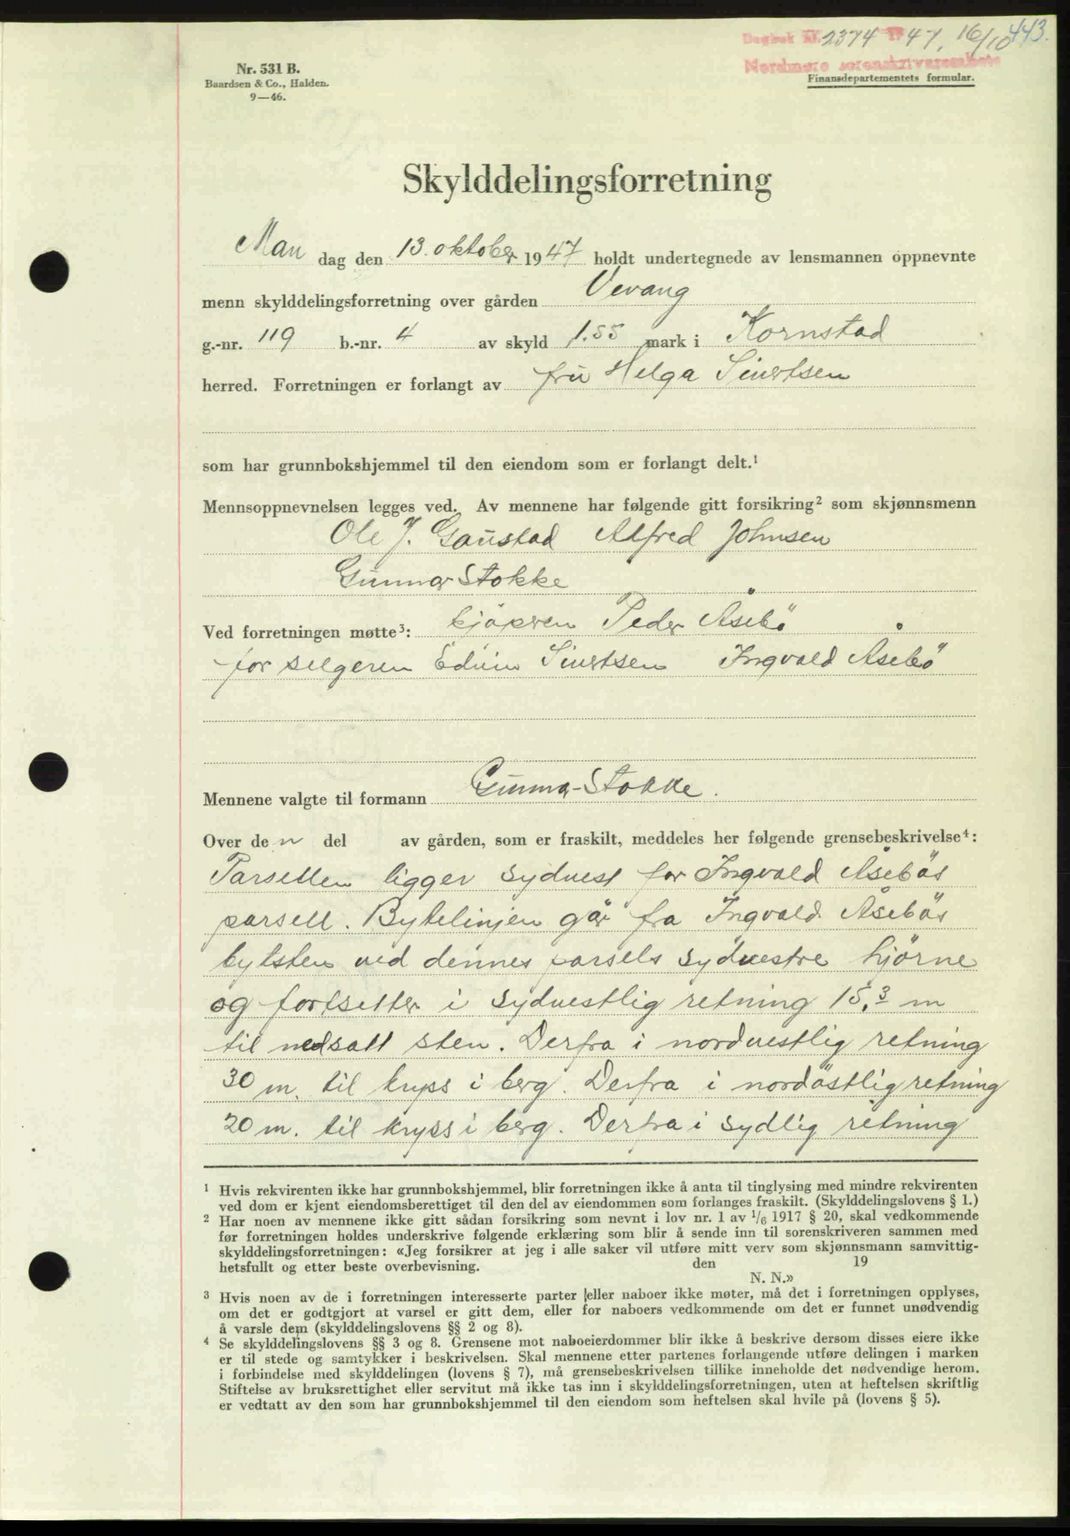 Dagbok nr. 2374 1947, 16/10 443.
Nordmøre sorenskriverembete
Nr. 531 B.
Baardsen & Co., Halden.
9—46.
Finansdepartementets formular.
Skylddelingsforretning
Man dag den 13. oktober 1947 holdt undertegnede av lensmannen oppnevnte
menn skylddelingsforretning over gården Vevang
g.-nr. 119 b.-nr. 4 av skyld 1.55 mark i Kornstad
herred. Forretningen er forlangt av fru Helga Sivertsen
som har grunnbokshjemmel til den eiendom som er forlangt delt.¹
Mennsoppnevnelsen legges ved. Av mennene har følgende gitt forsikring² som skjønnsmenn
Ole J. Gaustad Alfred Johnsen
Gunnar Stokke
Ved forretningen møtte³: kjöperen Peder Åsebö
for selgeren Edvin Sivertsen Ingvald Åsebö
Mennene valgte til formann Gunnar Stokke.
Over den del av gården, som er fraskilt, meddeles her følgende grensebeskrivelse⁴:
Parsellen ligger sydvest for Ingvald Åsebös
parsell. Bytelinjen går fra Ingvald Åsebös
bytsten ved dennes parsels sydvestre hjörne
og fortsetter i sydvestlig retning 15,3 m
til nedsatt sten. Derfra i nordvestlig retning
30 m. til kryss i berg. Derfra i nordöstlig retning
20 m. til kryss i berg. Derfra i sydlig retning
¹ Hvis rekvirenten ikke har grunnbokshjemmel, blir forretningen ikke å anta til tinglysing med mindre rekvirenten
ved dom er kjent eiendomsberettiget til den del av eiendommen som forlanges fraskilt. (Skylddelingslovens § 1.)
² Har noen av mennene ikke gitt sådan forsikring som nevnt i lov nr. 1 av 1/6 1917 § 20, skal vedkommende
før forretningen holdes underskrive følgende erklæring som blir å sende inn til sorenskriveren sammen med
skylddelingsforretningen: «Jeg forsikrer at jeg i alle saker vil utføre mitt verv som skjønnsmann samvittig-
hetsfullt og etter beste overbevisning. den 19
N. N.»
³ Hvis noen av de i forretningen interesserte parter eller naboer ikke møter, må det i forretningen opplyses,
om det er godtgjort at varsel er gitt dem, eller for naboers vedkommende om det er funnet unødvendig
å varsle dem (skylddelingslovens §§ 2 og 8).
⁴ Se skylddelingslovens §§ 3 og 8. Grensene mot naboeierdommer blir ikke å beskrive dersom disses eiere ikke
er til stede og samtykker i beskrivelsen. Skal mennene etter partenes forlangende utføre delingen i marken
i forbindelse med skylddelingen (lovens § 7), må grensebeskrivelsen tillike inneholde det nødvendige herom.
Stiftelse av bruksrettighet eller servitut må ikke tas inn i skylddelingsforretningen, uten at heftelsen skriftlig
er vedtatt av den som har grunnbokshjemmel til den eiendom som heftelsen skal hvile på (lovens § 5).